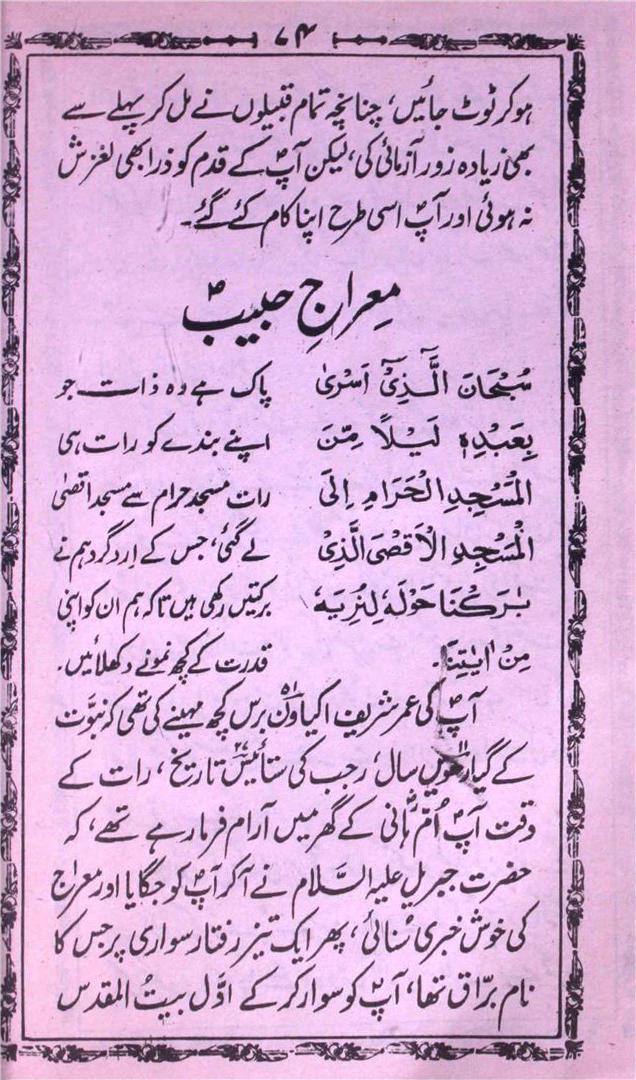 ۷۴
ہوکر ٹوٹ جائیں، چنانچہ تمام قبیلوں نے مل کر پہلے سے
بھی زیادہ زور آزمائی کی، لیکن آپؐ کے قدم کو ذرا بھی لغزش
نہ ہوئی اور آپؐ اسی طرح اپنا کام کئے گئے۔
معراجِ حبیبؐ
سُبْحَانَ الَّذِیْٓ اَسْرٰی
بِعَبْدِهٖ لَیْلًا مِّنَ
الْمَسْجِدِ الْحَرَامِ اِلَی
الْمَسْجِدِ الْاَقْصَی الَّذِیْ
بٰرَکْنَا حَوْلَهٗ لِنُرِیَهٗ
مِنْ اٰیٰتِنَا۔
پاک ہے وہ ذات جو
اپنے بندے کو رات ہی
رات مسجد حرام سے مسجد اقصیٰ
لے گئی، جس کے اردگرد ہم نے
برکتیں رکھی ہیں تاکہ ہم ان کو اپنی
قدرت کے کچھ نمونے دکھلائیں۔
آپؐ کی عمر شریف اکیاون۵۱ برس کچھ مہینے کی تھی کہ نبوّت
کے گیارھویں سال، رجب کی ستائیس۲۷ تاریخ، رات کے
وقت آپؐ اُمّ ہانی کے گھر میں آرام فرما رہے تھے، کہ
حضرت جبریل علیہ السَّلام نے آکر آپؐ کو جگایا اور معراج
کی خوش خبری سُنائی، پھر ایک تیز رفتار سواری پر جس کا
نام برّاق تھا، آپؐ کو سوار کر کے اوّل بیتُ المقدس